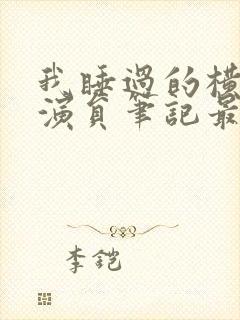 我睡過的橫
演員筆記最
李鎧